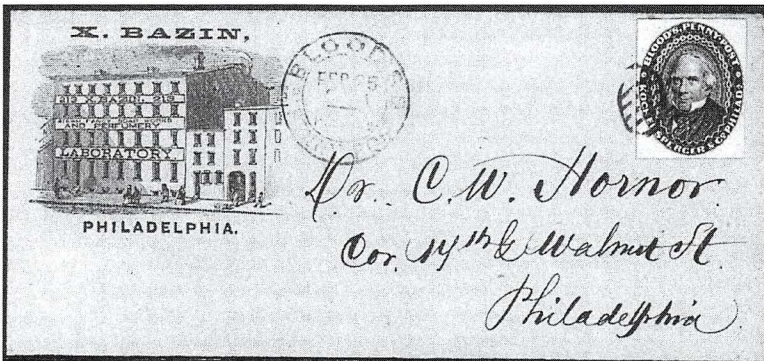 X. BAZIN,
212 X. BAZIN. 212
AND PERFUMERY
LABORATORY.
PHILADELPHIA.
BLOOD'S
FEB 25
BLOOD'S PENNY POST
KOCHERSPERGER & CO. PHILADA
Dr. C. W. Hornor.
Cor. 14th & Walnut St.
Philadelphia